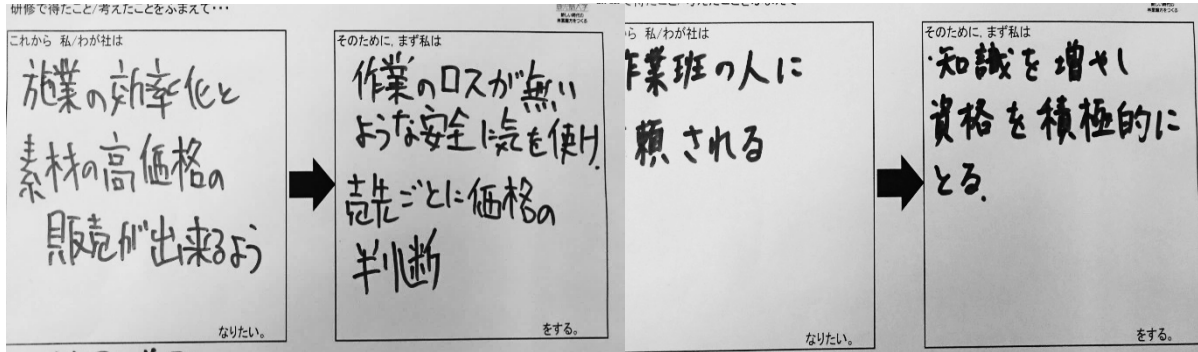 研修で得たこと/考えたことをふまえて・・・
これから 私/わが社は
施業の効率化と
素材の高価格の
販売が出来るよう
なりたい。
そのために、まず私は
作業のロスが無い
ような安全に気を使け.
売先ごとに価格の
判断
をする。
ら 私/わが社は
作業班の人に
頼される
なりたい。
そのために、まず私は
・知識を増やし
資格を積極的に
とる.
をする。